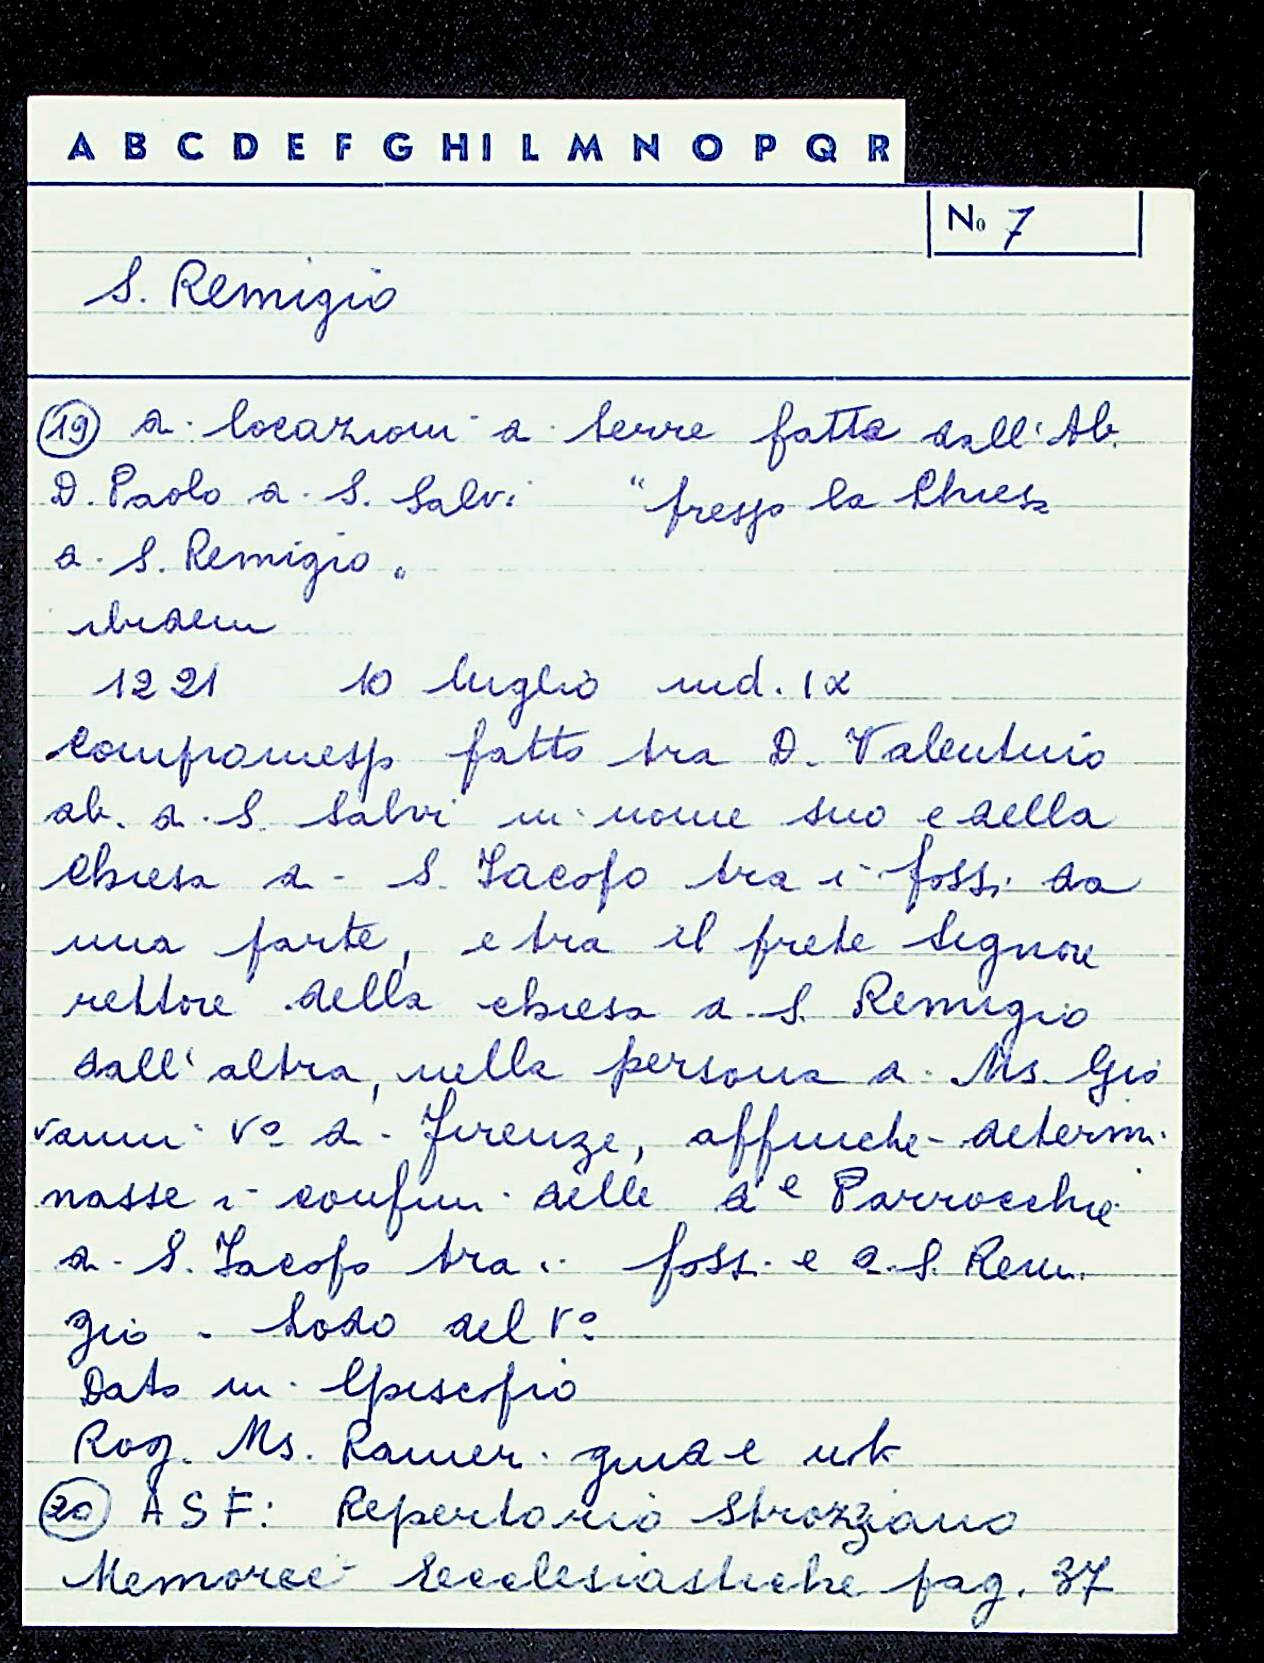 A B C D E F G H I L M N O P Q R
No 7
S. Remigio
19 di locazioni di terre fatte dall'Ab.
D. Paolo di S. Salvi "presso la Chiesa
di S. Remigio.
ibidem
1221 10 luglio ind. IX
Compromesso fatto tra D. Valentino
ab. di S. Salvi in nome suo e della
Chiesa di S. Iacopo tra i fossi da
una parte, e tra il prete Signore
rettore della chiesa di S. Remigio
dall'altra, nella persona di Ms. Gio
vanni Vº di Firenze, affinche determi
nasse i confini delle dᵉ Parrocchie
di S. Iacopo tra i fossi e di S. Remi
gio - Lodo del Vº
Dato in Episcopio
Rog. Ms. Ranieri giud e
20 A S F: Repertorio Strozziano
Memorie Ecclesiastiche pag. 37